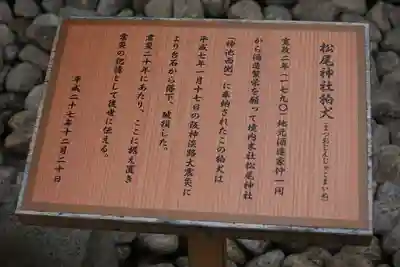 松尾神社狛犬(まつおじんじゃこまいぬ)
寛政二年(一七九〇)地元酒造家仲一同
から酒造繁栄を願って境内末社松尾神社
(神池西側)に奉納されたこの狛犬は
平成七年一月十七日の阪神淡路大震災に
より台石から落下、破損した。
震災二十年にあたり、ここに据え置き
震災の記憶として後世に伝える。
平成二十七年十二月二十日